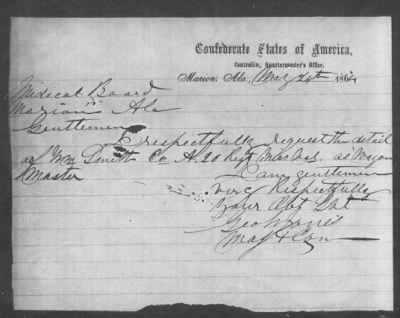 Confederate States of America,
Controlling Quartermaster's Office,
Marion, Ala., May 24th 1864
Medical Board
Marion Ala
Gentlemen
I respectfully request the detail
of Wm Co A. 20 Regt Miss Vol, as Wagon
Master
I am gentlemen
very Respectfully
Your Obt Svt
Geo
Maj &